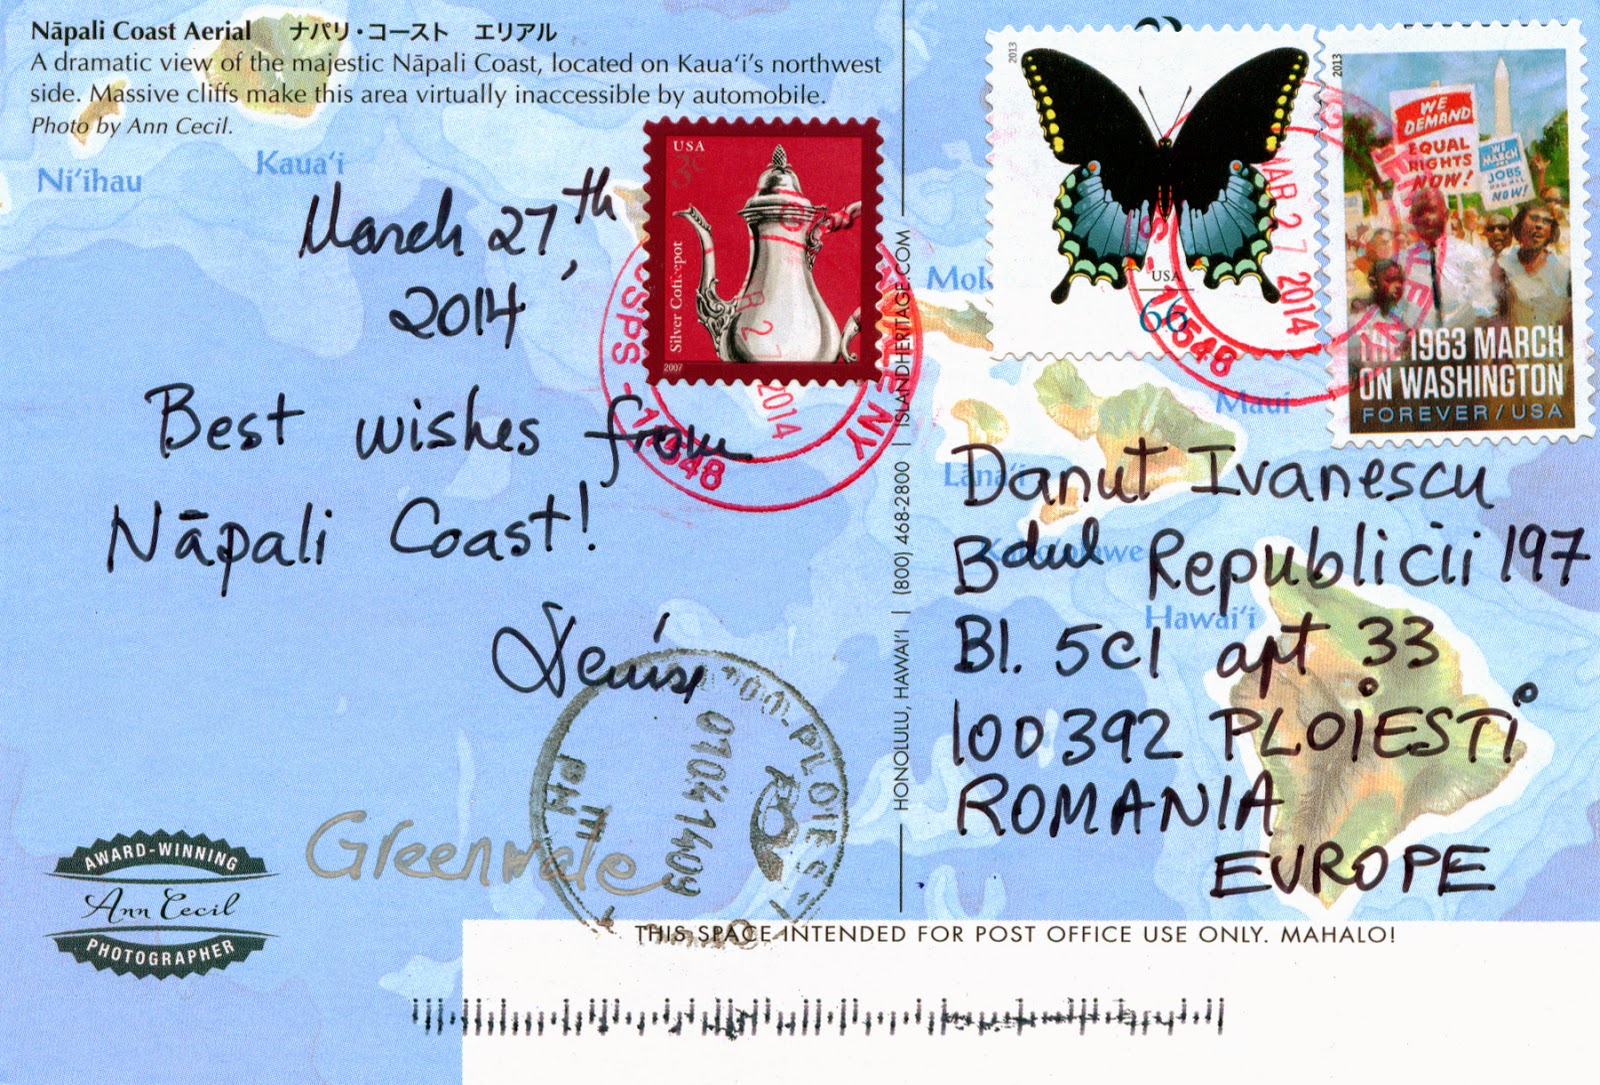 Nāpali Coast Aerial ナパリ・コースト エリアル
A dramatic view of the majestic Nāpali Coast, located on Kaua‘i’s northwest
side. Massive cliffs make this area virtually inaccessible by automobile.
Photo by Ann Cecil.
Ni‘ihau
Kaua‘i
March 27th,
2014
Best wishes from
Nāpali Coast!
Denise
Greenvale
AWARD-WINNING
Ann Cecil
PHOTOGRAPHER
USA
3¢
Silver Coffeepot
2007
USPS - 11548
2014
HONOLULU, HAWAI‘I | (800) 468-2800 | ISLANDHERITAGE.COM
2013
USA
66
MAR 27 2014
11548
2013
WE
DEMAND
EQUAL
RIGHTS
NOW!
WE
MARCH
FOR
JOBS
FOR ALL
NOW!
THE 1963 MARCH
ON WASHINGTON
FOREVER/USA
Maui
Lāna‘i
Hawai‘i
Danut Ivanescu
Bdul Republicii 197
Bl. 5c1 apt 33
100392 PLOIESTI
ROMANIA
EUROPE
PLOIESTI
THIS SPACE INTENDED FOR POST OFFICE USE ONLY. MAHALO!